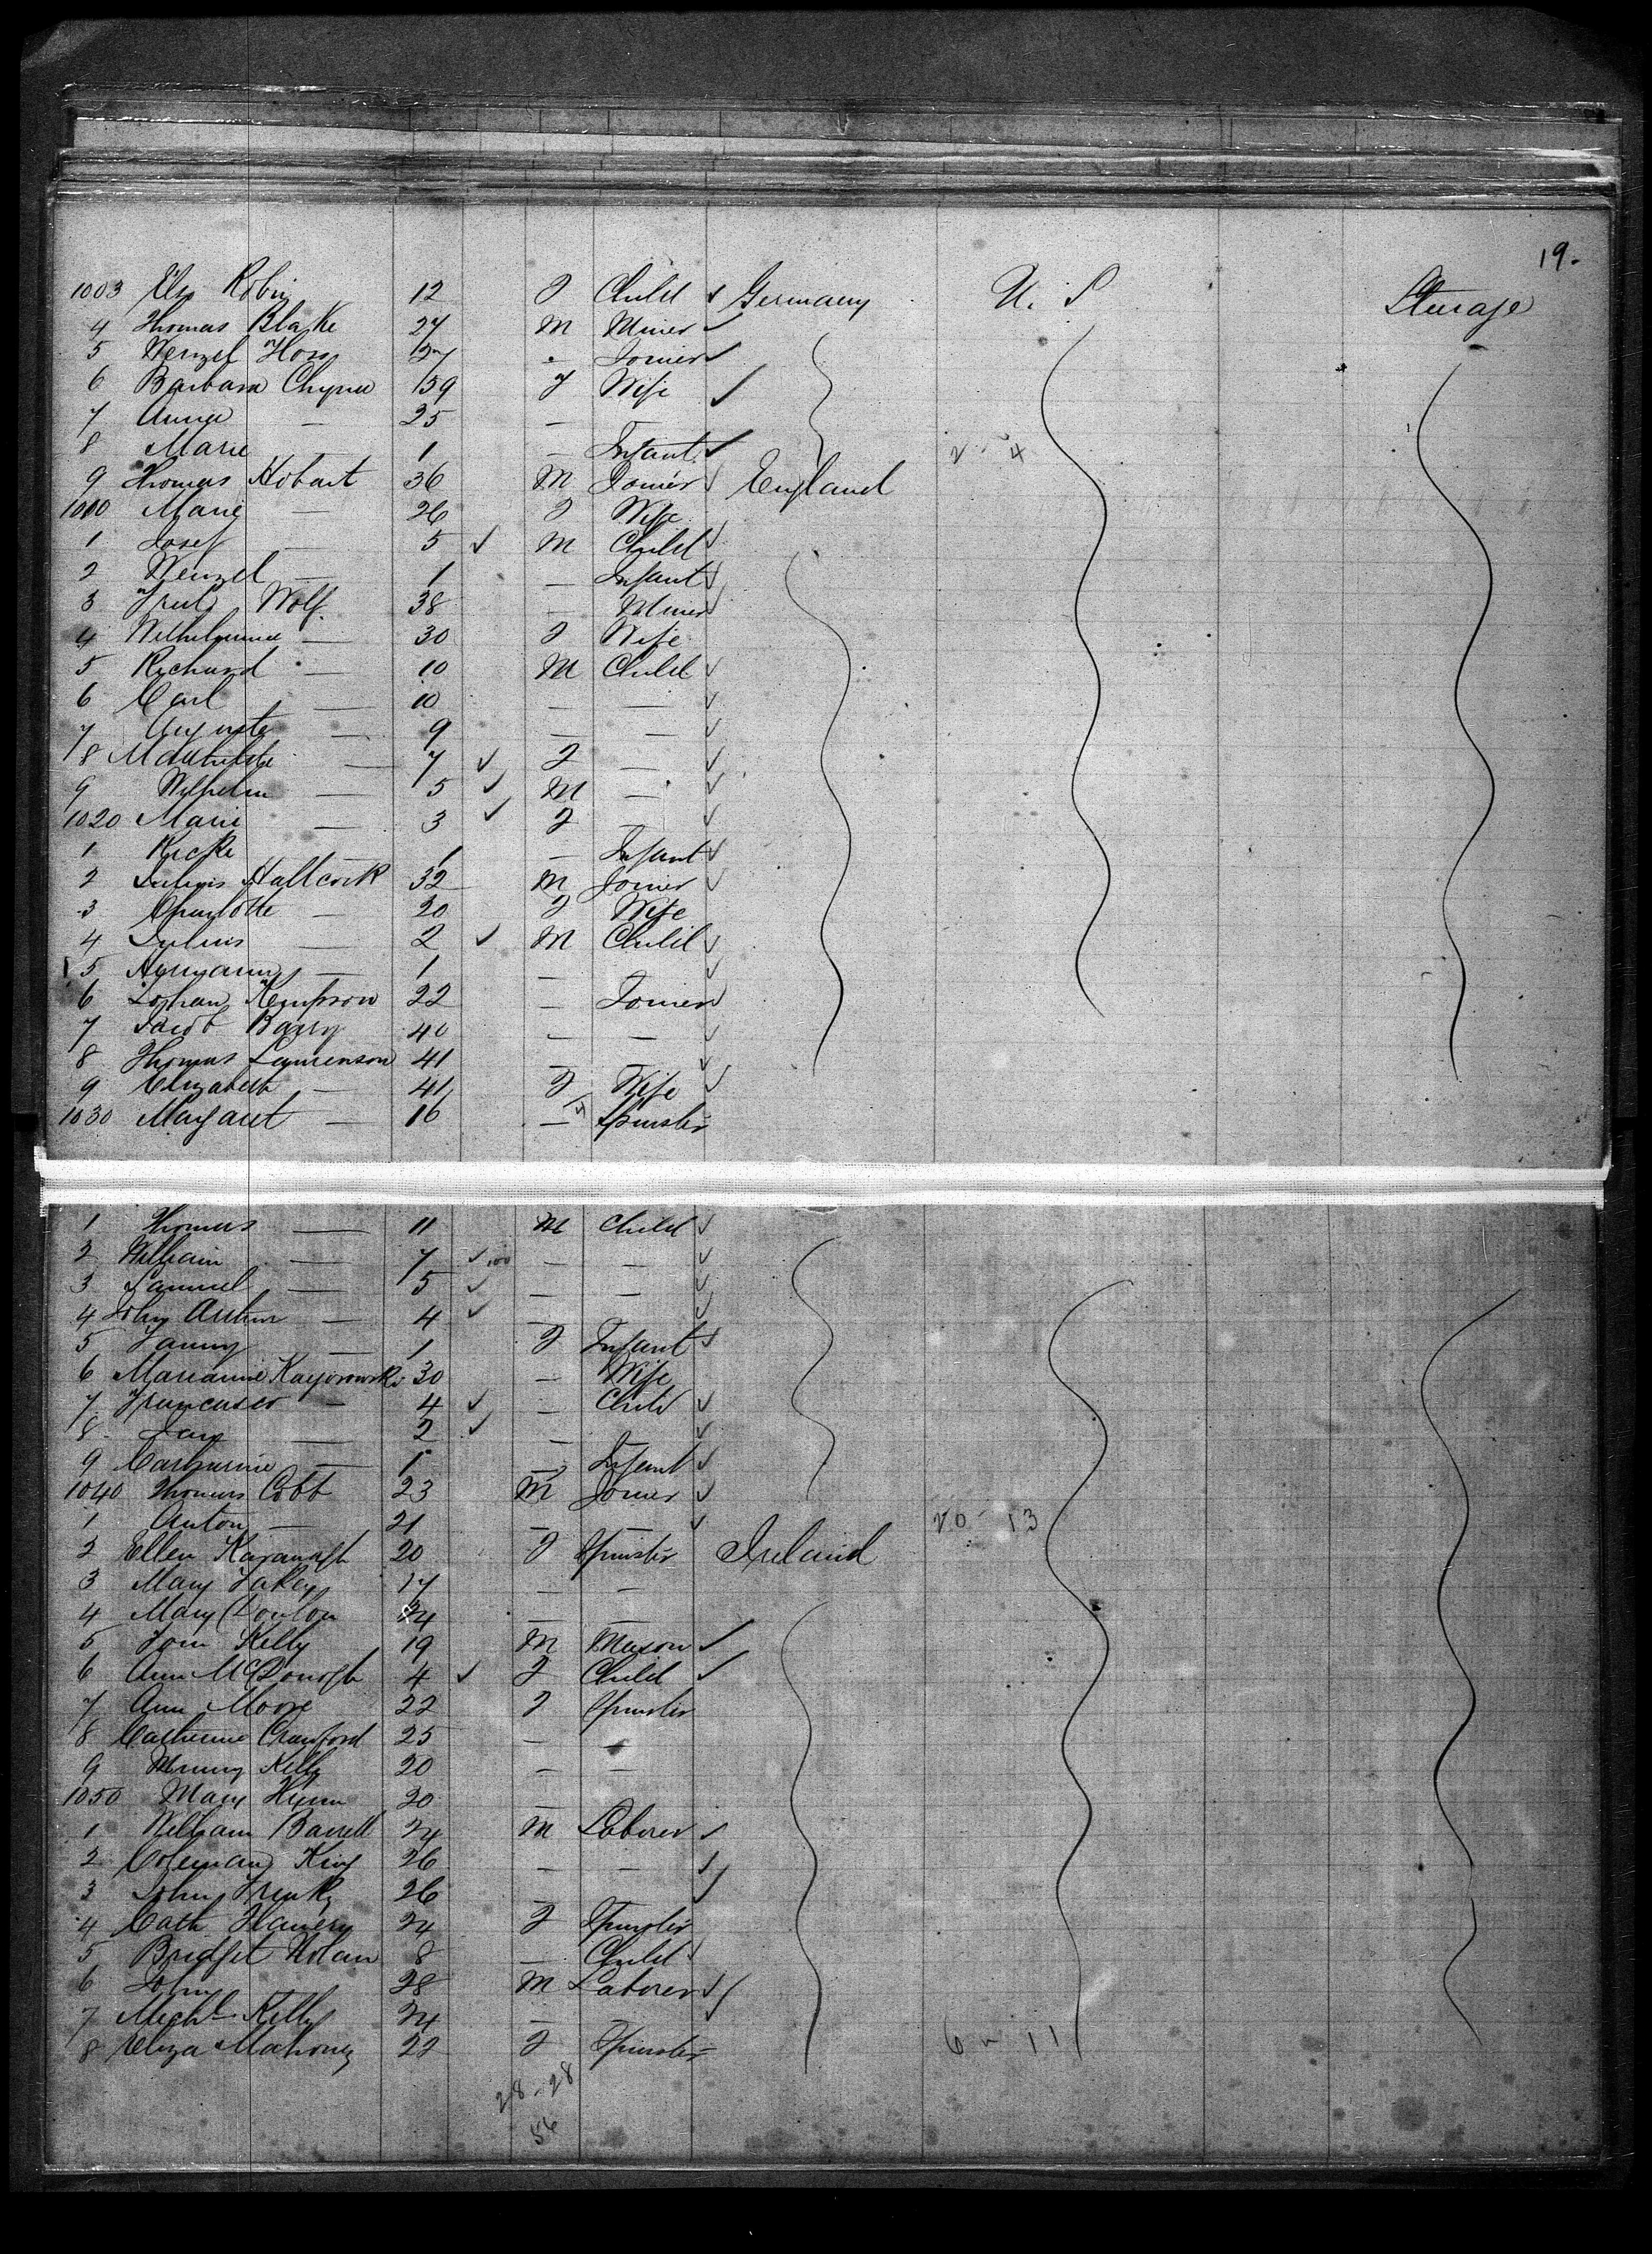 19.
1003 Robin 12 F Child ✓ Germany U. S Steerage
4 Thomas Blake 27 M Miner ✓
5 Wenzel Hoss - Joiner ✓
6 Barbara F Wife ✓
7 Anna — 25 —
8 Marie — 1 — Infant ✓ 2 - 4
9 Thomas Hobart 36 M Joiner ✓ England
1010 Marie — 26 F Wife
1 Josef — 5 ✓ M Child ✓
2 Wenzel — 1 — Infant ✓
3 Wolf 38 — Miner ✓
4 Wilhelmine — 30 F Wife
5 Richard — 10 M Child ✓
6 Carl — 10 — — ✓
7 Auguste — 9 — — ✓
8 Mathilde — 7 ✓ F — ✓
9 Wilhelm — 5 ✓ M — ✓
1020 Marie — 3 ✓ F — ✓
1 1 — Infant ✓
2 Julius Hallcock 32 M Joiner ✓
3 Charlotte — 20 F Wife
4 Julius — 2 ✓ M Child ✓
5 Hermann — 1 — ✓
6 Johan Kempson 22 — Joiner ✓
7 Jacob Barry 40 — — ✓
8 Thomas Laurenson 41 ✓
9 Elizabeth — 41 F Wife ✓
1030 Margaret — 16 — Spinster
1 Thomas — 11 M Child ✓
2 William — 7 ✓ — — ✓
3 Samuel — 5 ✓ — — ✓
4 John Arthur — 4 ✓ — ✓
5 Fanny — 1 F Infant ✓
6 Marianne Kayorowski 30 — Wife
7 — 4 ✓ — Child ✓
8 — 2 ✓ — ✓
9 Catharine — 1 — Infant ✓
1040 Thomas Cobb 23 M Joiner ✓
1 Anton — 21 — — ✓ 20 - 13
2 Ellen Kavanagh 20 F Spinster Ireland
3 Mary Fahey 17 — —
4 Mary Donlon 24 — —
5 Tom Kelly 19 M Mason ✓
6 Ann McDonogh 4 ✓ F Child ✓
7 Ann Moore 22 F Spinster
8 Catherine Crawford 25 — —
9 Kelly 20 — —
1050 Mary 20 —
1 William Barrett 24 M Laborer ✓
2 Coleman King 26 — — ✓
3 John 26 — ✓
4 Cath 24 F Spinster
5 Bridget Nolan 8 — Child ✓
6 John 28 M Laborer ✓
7 Michl Kelly 24 — — ✓
8 Eliza Mahoney 22 F Spinster 6 - 11
28 - 28
56